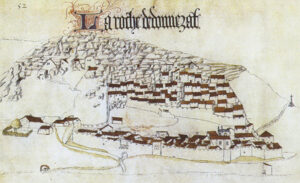 52
La roche dedonnezat